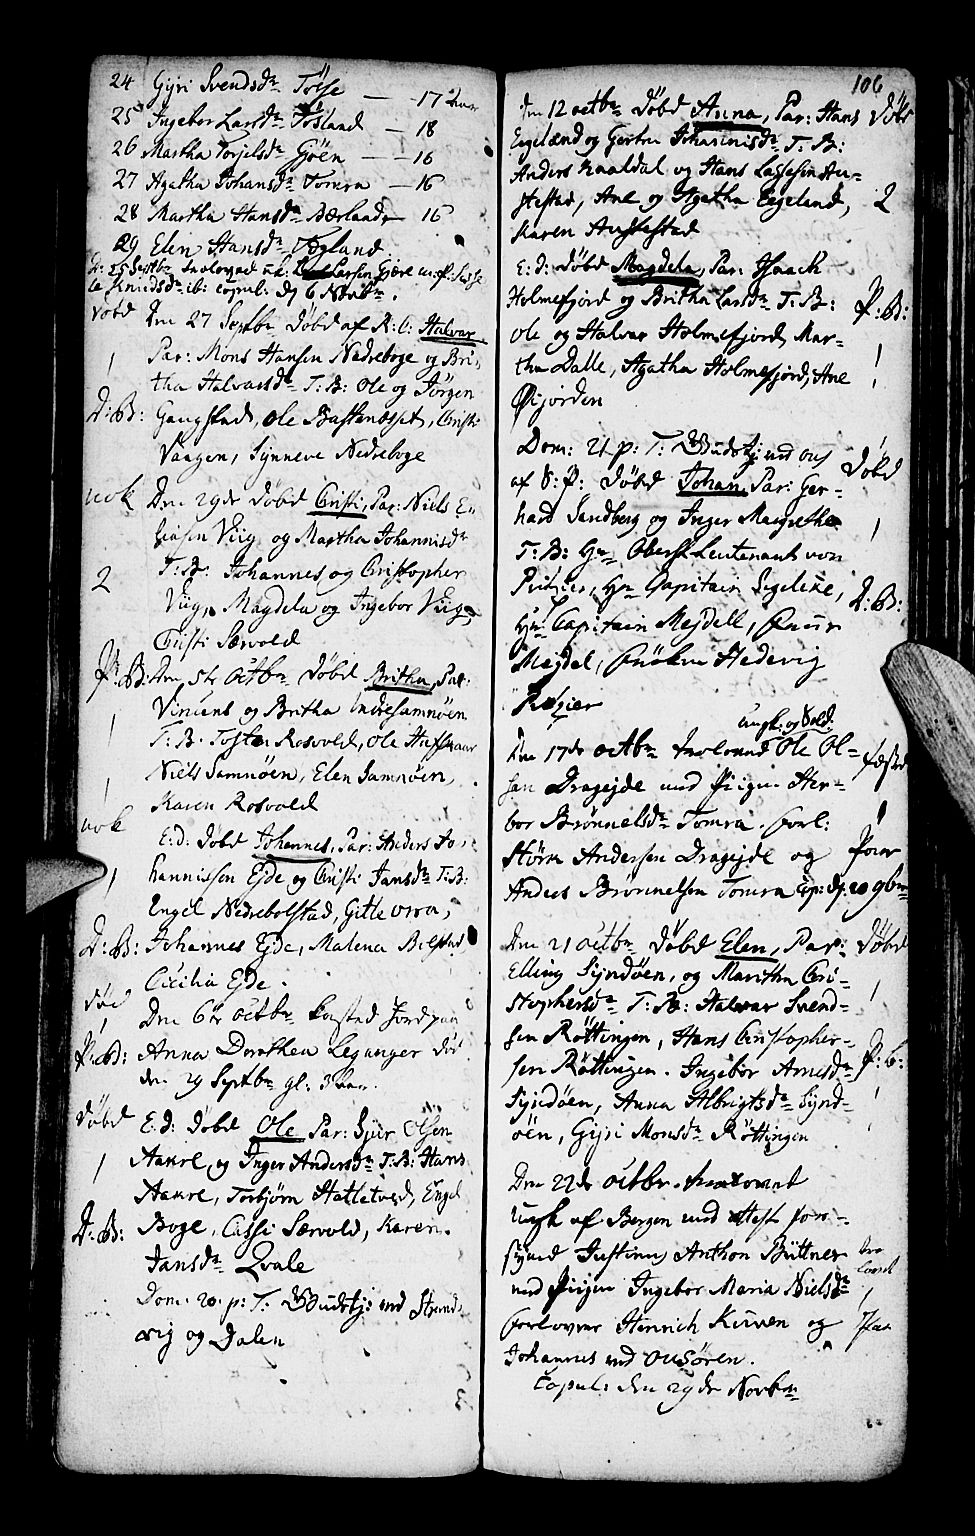 24 Gyri Svendsdr Tøsse — 17 Aar
25 Ingebor Larsdr Røsland — 18
26 Martha Torjelsdr Gjøen — 16
27 Agatha Johansdr Tomra — 16
28 Martha Hansdr Bærland — 16
29 Elen Hansdr Fogland
D: 25 Septbr troloved
Larsen Gjøre
Knudsdr ib: copul: d 6 Novbr.
Døbd Den 27 Septbr Døbd af R: C: Halvar
1 Par: Mons Hansen Nedreboge og Bri-
tha Halvarsdr T: B: Ole og Jörgen
D: B: Gangstad, Ole Bastenesset, Cristi
Vaagen, Synneve Nedreboge
nok Den 29de Døbd Cristi, Par: Niels E-
liasen Viig og Martha Johannisdr
2 T: B: Johannes og Christopher
Viig, Magdela og Ingebor Viig
Cristi Særvold
P: B: Den 5te Octbr Døbd Britha, Par:
1 Vincens og Britha Indresamnøen
T: B: Tosten Rosvold, Ole Hufthaar
1 Niels Samnøen, Elen Samnøen,
Karen Rosvold
nok E: d: Døbd Johannes, Par: Anders Jo-
1 hannissen Ejde og Cristi Jansdr T: B:
Engel Nedrebolstad, Gitte Ovra,
D: B: Johannes Ejde, Malena Bolstad,
Cecilia Ejde.
død Den 6te Octbr kastad Jord paa
1
P: B: Anna Dorothea Leganger død
den 29 Septbr gl: 3 Aar.
Døbd E: d: Døbd Ole Par: Siur Olsen
1 Aakre, og Inger Andersdr T: B: Hans
Aakre, Torbjørn Hatletved, Engel
D: B: Boge, Cassi Særvold, Karen
Jansdr Qvale
Dom: 20. p: T: Gudstj: ved Strand-
vig og Dalen
106
Den 12 Octbr Døbd Anna, Par: Hans Døbd
Eegeland og Gertru Johannisdr T: B:
Anders Kaaldal og Hans Lassesin Au-
stestad, Ane og Agatha Eegeland, 2
Karen Austestad
E: d: Døbd Magdela, Par: Isaach
Holmefjord og Britha Larsdr T: B: P: B:
Ole og Halvar Holmefjord, Mar- 1
tha Dalle, Agatha Holmefjord, Ane 1
Øijorden
Dom: 21. p: T: Gudstj: ved Ous
af S: P: Døbd Johan, Par: Ger- Døbd
hard Sandberg og Inger Margrethe 1
T: B: Hr Oberst Leutenant von
Pritzier, Hr Capitain Segelche, D: B:
Hr Capitain Mejdell, Fruer
Mejdel, Frøken Hedevig
Pritzier
Ungk: og Sold:
Den 17de Octbr trolovad Ole Ol- fæsted
sen Dragejde med Pigen Her-
bor Brønnelsdr Tomra. forl: 1
Størk Andersen Dragejde og Par
Anders Brønnelsen Tomra cop: d. 20 9br
Den 21 Octbr Døbd Elen, Par: Døbd
Elling Syndøen, og Maritha Cri- 1
stophersdr T: B: Halvar Svend-
sen Röttingen, Hans Cristopher-
sen Röttingen. Ingebor Arnesdr P: B:
Syndøen, Anna Albrigtsdr Synd- 1
øen, Gyri Monsdr Röttingen
Den 22de Octbr
Ungk af Bergen med Attest for-
synd Justinus Anthon Büttner tro
med Pigen Ingebor Maria Nielsdr lovet
forlovere Henrich Kuven og 1 Par
Johannes ved Ousören.
Copul: den 29de Novbr